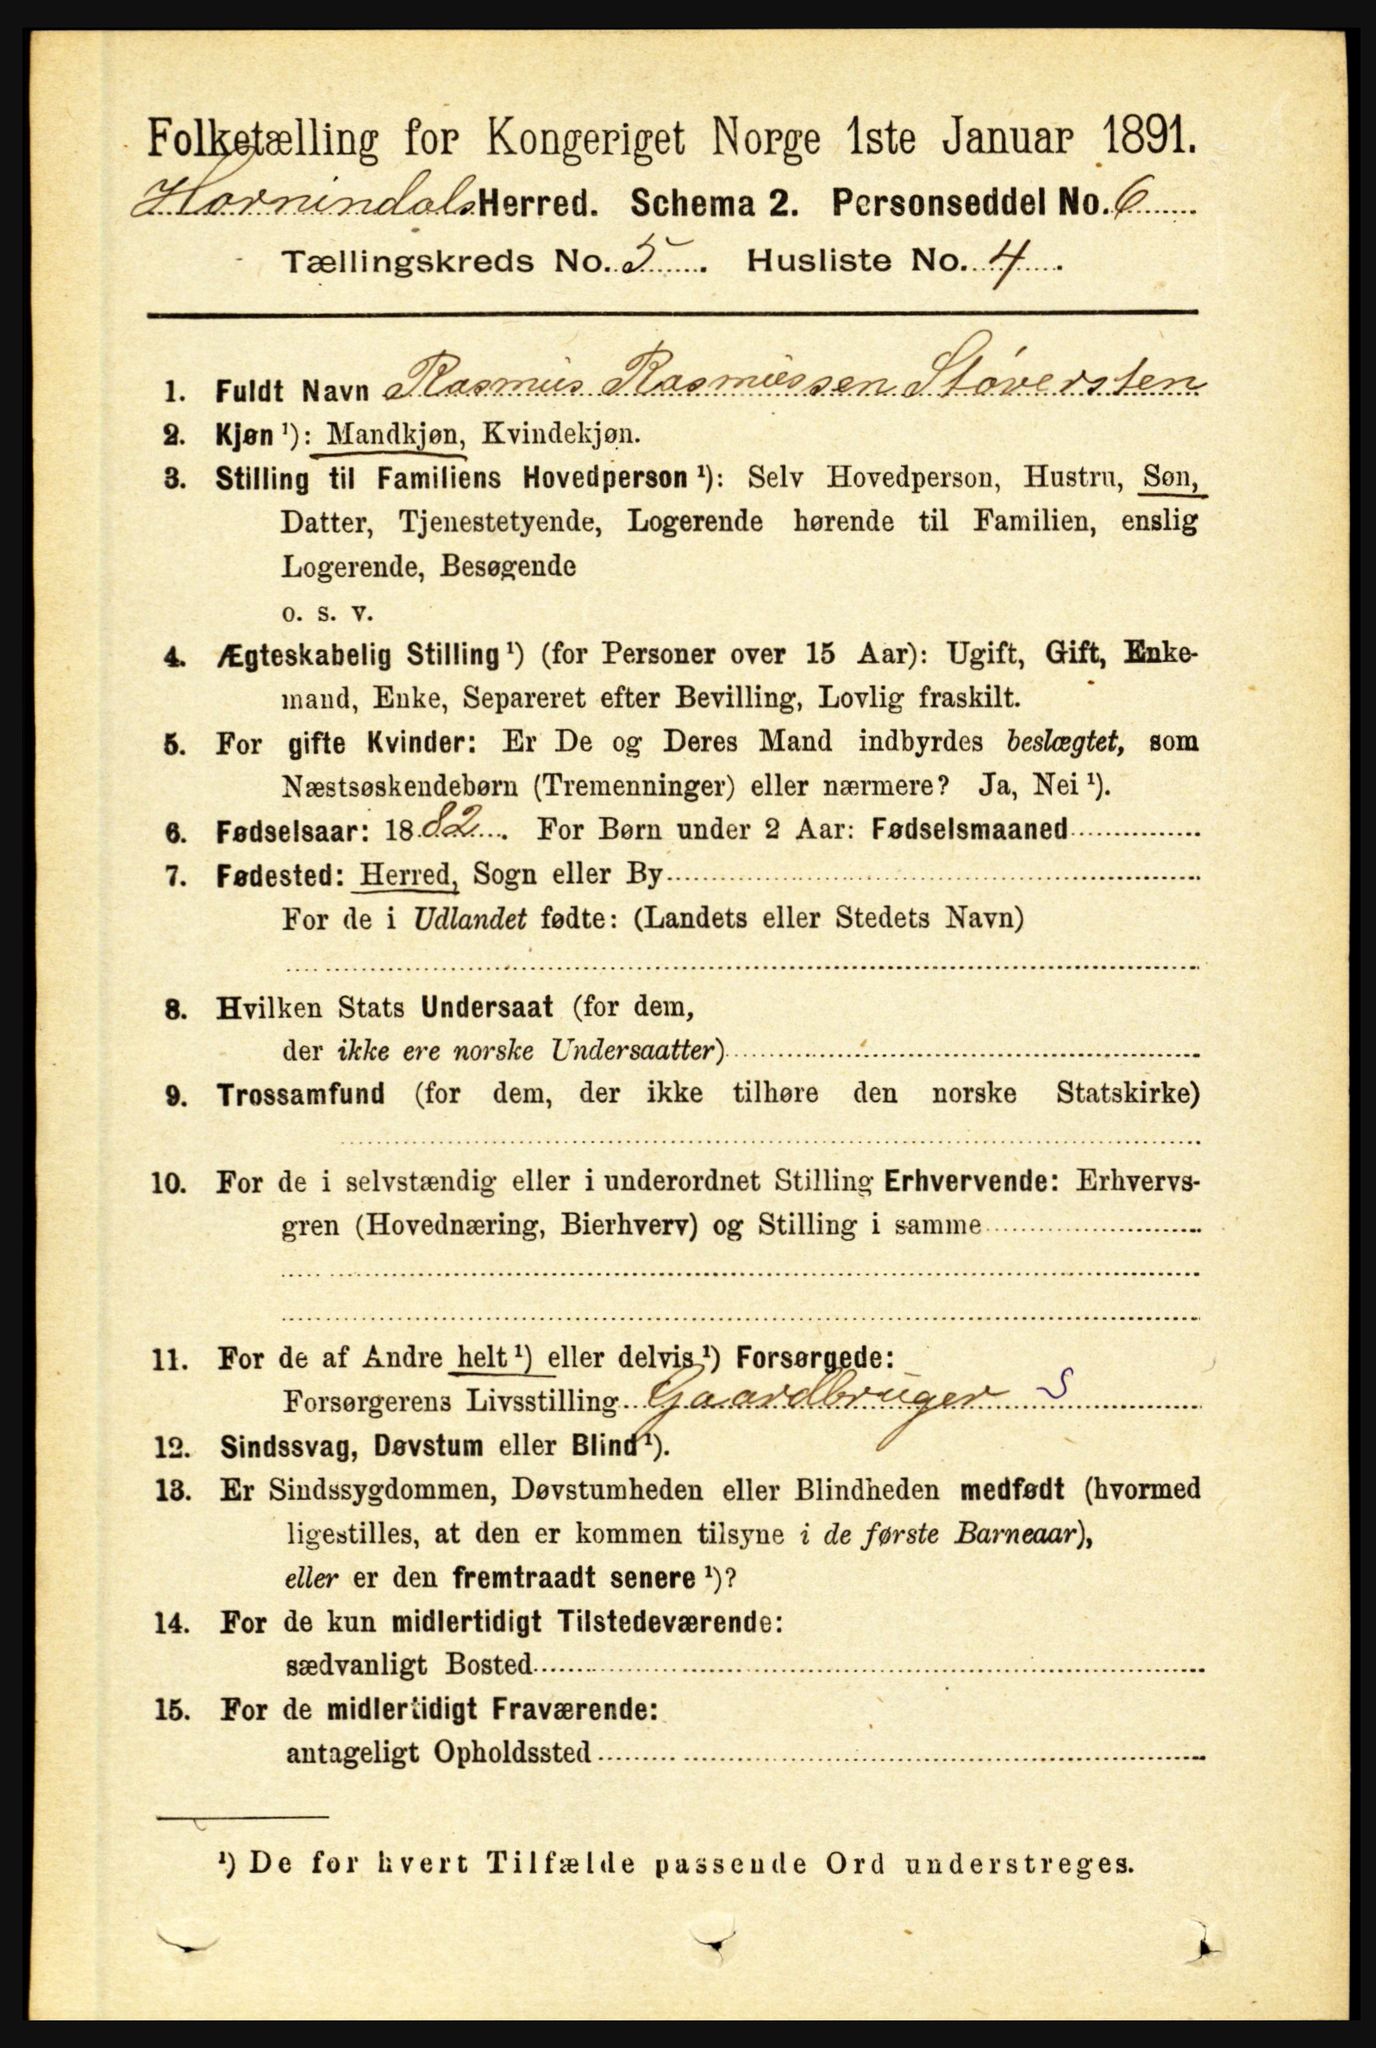 Folketælling for Kongeriget Norge 1ste Januar 1891.
Hornindals Herred. Schema 2. Personseddel No. 6
Tællingskreds No. 5. Husliste No. 4.
1. Fuldt Navn Rasmus Rasmussen Støversten
2. Kjøn ¹): Mandkjøn, Kvindekjøn.
3. Stilling til Familiens Hovedperson ¹): Selv Hovedperson, Hustru, Søn,
Datter, Tjenestetyende, Logerende hørende til Familien, enslig
Logerende, Besøgende
o. s. v.
4. Ægteskabelig Stilling ¹) (for Personer over 15 Aar): Ugift, Gift, Enke-
mand, Enke, Separeret efter Bevilling, Lovlig fraskilt.
5. For gifte Kvinder: Er De og Deres Mand indbyrdes beslægtet, som
Næstsøskendebørn (Tremenninger) eller nærmere? Ja, Nei ¹).
6. Fødselsaar: 1882. For Børn under 2 Aar: Fødselsmaaned
7. Fødested: Herred, Sogn eller By
For de i Udlandet fødte: (Landets eller Stedets Navn)
8. Hvilken Stats Undersaat (for dem,
der ikke ere norske Undersaatter)
9. Trossamfund (for dem, der ikke tilhøre den norske Statskirke)
10. For de i selvstændig eller i underordnet Stilling Erhvervende: Erhvervs-
gren (Hovednæring, Bierhverv) og Stilling i samme
11. For de af Andre helt ¹) eller delvis ¹) Forsørgede:
Forsørgerens Livsstilling Gaardbruger S
12. Sindssvag, Døvstum eller Blind ¹).
13. Er Sindssygdommen, Døvstumheden eller Blindheden medfødt (hvormed
ligestilles, at den er kommen tilsyne i de første Barneaar),
eller er den fremtraadt senere ¹)?
14. For de kun midlertidigt Tilstedeværende:
sædvanligt Bosted
15. For de midlertidigt Fraværende:
antageligt Opholdssted
¹) De for hvert Tilfælde passende Ord understreges.